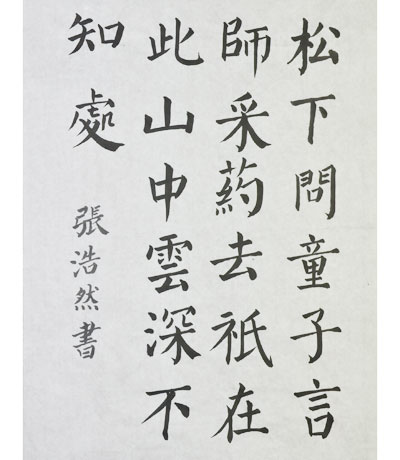 松下問童子言
師采葯去祇在
此山中雲深不
知處
張浩然書